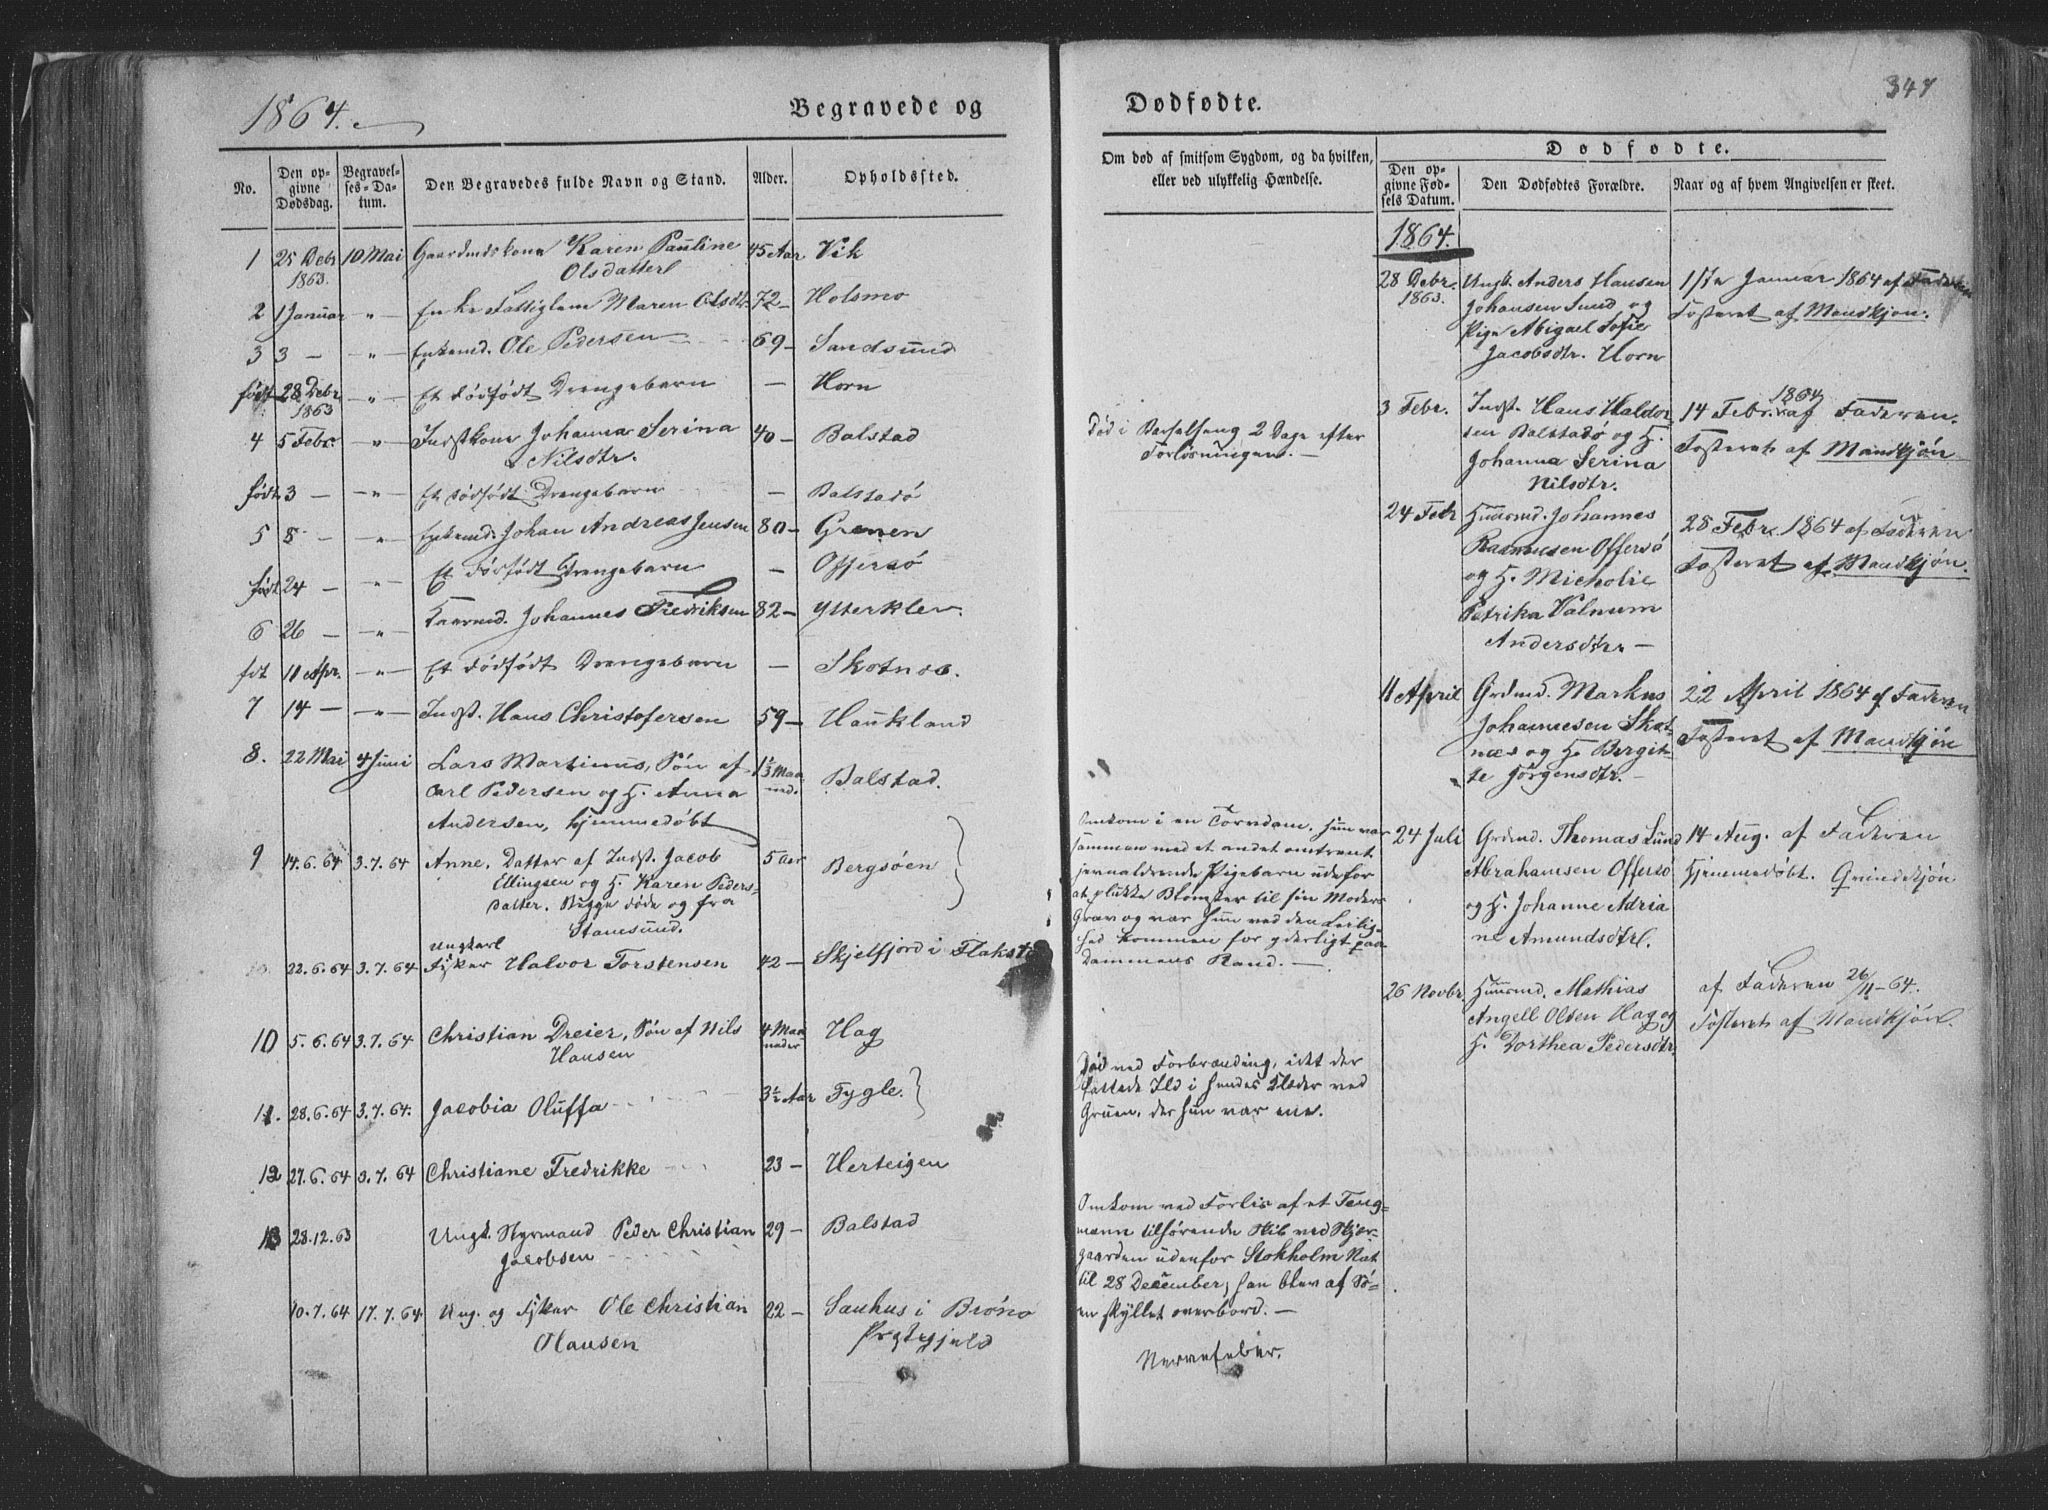 1864.
Begravede og
No.
Den opgivne Dødsdag.
Begravelses-Datum.
Den Begravedes fulde Navn og Stand.
Alder.
Opholdssted.
1 25 Debr 1863. 10 Mai Gaardmdskone Karen Pauline 45 Aar Vik
Olsdatter
2 1 Januar -"- Enke Fattiglem Maren Olsdtr 72 - Holsmo
3 3 — -"- Enkemd. Ole Pedersen 69 - Sandsund
født 28 Debr 1863 -"- Et dødfødt Drengebarn — Horn
4 5 Febr. -"- Indstkone Johanna Serina 40 - Balstad
Nilsdtr.
født 3 — -"- Et dødfødt Drengebarn — Balstadø
5 8 — -"- Enkemd. Johan Andreas Jensen 80 - Grenen
født 24 — -"- Et dødfødt Drengebarn — Offersø
6 26 — -"- Gaarmd. Johannes Fredriksen 82 - Ytterklev
fdt 11 Apr. -"- Et dødfødt Drengebarn — Skotnes.
7 14 — -"- Indst. Hans Christofersen 59 - Haukland
8. 22 Mai 4 Juni Lars Martinus, Søn af 1⅓ Maa-
Carl Pedersen og H. Anna ned. Balstad.
Andersen, hjemmedøbt
9 14.6.64 3.7.64 Anne, Datter af Indst. Jacob 5 Aar Bergsøen
Ellingsen og H. Karen Peders-
datter. Begge døde og fra
Stamsund.
Ungkarl
22.6.64 3.7.64 Fisker Halvor Torstensen 42 - Skjelfjord i Flakst
10 5.6.64 3.7.64 Christian Dreier, Søn af Nils 4 Maa- Hag
Hansen neder
11. 28.6.64 3.7.64. Jacobia Oluffa 3½ Aar Fygle.
12 27.6.64 3.7.64 Christiane Fredrikke 23 - Herteigen
13 28.12.63 Ungk. Styrmand Peder Christian 29 - Balstad
Jacobsen
10.7.64 17.7.64 Ung. og Fisker Ole Christian 22 - Sauhus i Brønø
Olausen Prstegjeld
Dødfødte.
347
Om død af smitsom Sygdom, og da hvilken,
eller ved ulykkelig Hændelse.
Dødfødte.
Den opgivne Fødsels Datum.
Den Dødfødtes Forældre.
Naar og af hvem Angivelsen er skeet.
Død i Barselseng 2 Dage efter
Forløsningen. —
Omkom i en Torvdam. Hun var
sammen med et andet omtrent
jevnaldrende Pigebarn udefor
at plukke Blomster til sin Moders
Grav og var Hun ved den Leilig-
hed kommen for yderligt paa
Dammens Rand. —
Død ved Forbrænding, idet der
fattede Ild i hendes Klæder ved
Gruen, der hun var ene.
Omkom ved Forlis af et Tøng-
mann tilhørende Skib ved Skjær-
gaarden udenfor Stokholm Nat
til 28 December, han blev af Sø-
en skyllet overbord. —
Nervefeber.
1864.
28 Debr. 1863. Ungk. Anders Hansen 17de Januar 1864 af Faderen
Johansen Sund og Fosteret af Mandkjøn.
Pige Abigael Sofie
Jacobsdtr. Horn
3 Febr. Indst. Hans Haldor- 14 Febr. 1864 af Faderen.
sen Balstadø og H. Fosteret af Mandkjøn
Johanna Serina
Nilsdtr.
24 Febr Huusmd. Johannes 28 Febr. 1864 af Faderen
Rasmusen Offersø Fosteret af Mandkjøn.
og H. Micholie
Petrika Valnum
Andersdtr. —
11 April Grdmd. Markus 22 April 1864 af Faderen
Johannesen Skot- Fosteret af Mandkjøn
næs og H. Bergit-
te Jørgensdtr. —
24 Juli Grdmd. Thomas Lund 14 Aug. af Faderen
Abrahamsen Offersø Hjemmedøbt. Qvindekjøn
og H. Johanne Adria
ne Amundsdtr.
26 Novbr. Huusmd. Mathias af Faderen 26/11-64.
Angell Olsen Hag og Fosteret af Mandkjøn.
H. Dorthea Pedersdtr.